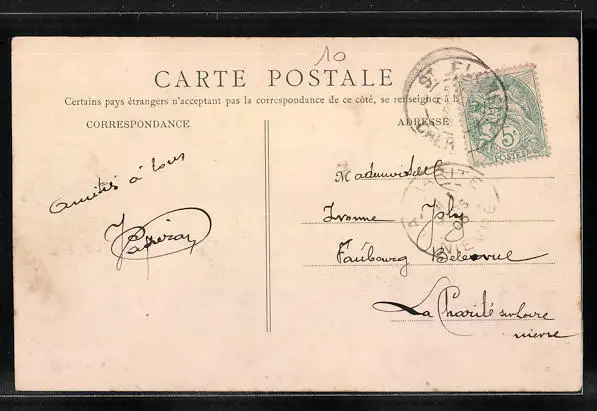 10
CARTE POSTALE
Certains pays étrangers n'acceptant pas la correspondance de ce côté, se renseigner à la
CORRESPONDANCE
ADRESSE
5c
POSTES
CHER
amitiés à tous
Mademoiselle
Ivonne Joly
Faubourg Bellevue
La Charité sur Loire
nievre
LA CHARITE
NIEVRE